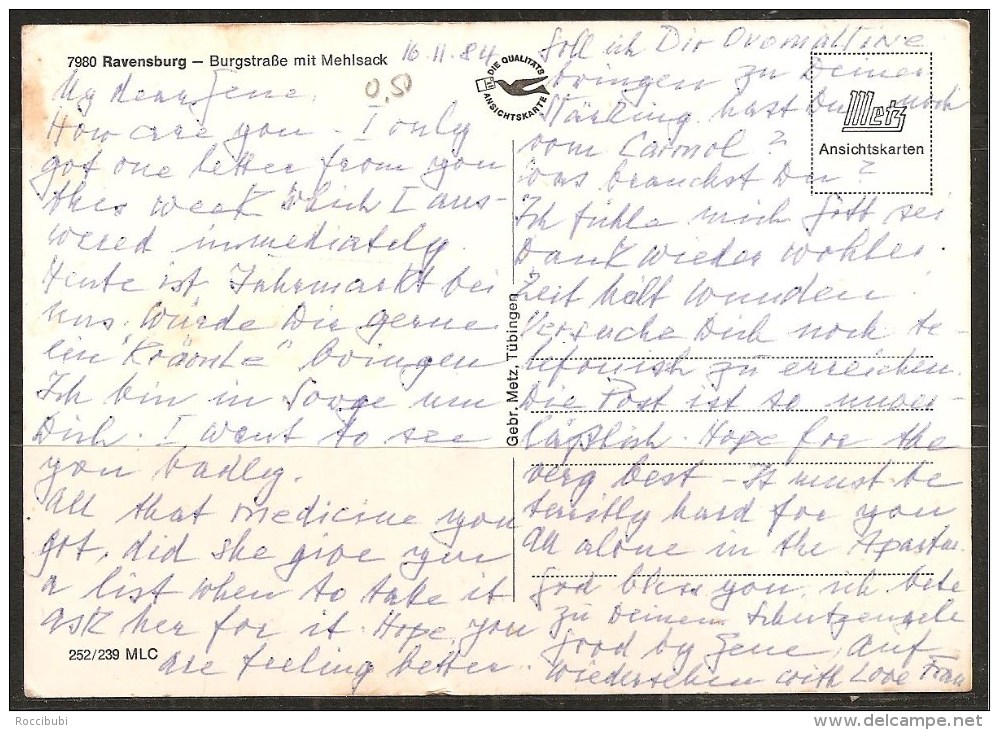 7980 Ravensburg – Burgstraße mit Mehlsack
16.11.84
0,50
My dear Gene,
How are you – I only
got one letter from you
this week which I ans-
wered immediately.
Heute ist Jahrmarkt bei
uns. Würde Dir gerne
ein "Krämle" bringen
Ich bin in Sorge um
Dich. I want to see
you badly.
All that medicine you
got, did she give you
a list when to take it
ask her for it. Hope you
are feeling better.
252/239 MLC
DIE QUALITÄTS
ANSICHTSKARTE
Gebr. Metz, Tübingen
Metz
Ansichtskarten
Soll ich Dir Ovomaltine
bringen zu Deiner
Stärkung, hast Du noch
vom Carmol?
was brauchst Du?
Ich fühle mich Gott sei
Dank wieder wohler.
Zeit heilt Wunden.
Versuche Dich noch te-
lefonish zu erreichen.
Die Post ist so unver-
läßlich. Hope for the
very best – It must be
terribly hard for you
all alone in the Apartm.
God bless you, ich bete
zu Deinem Schutzengele
good by Gene, Auf-
wiedersehen with Love Fran
Roccibubi
www.delcampe.net